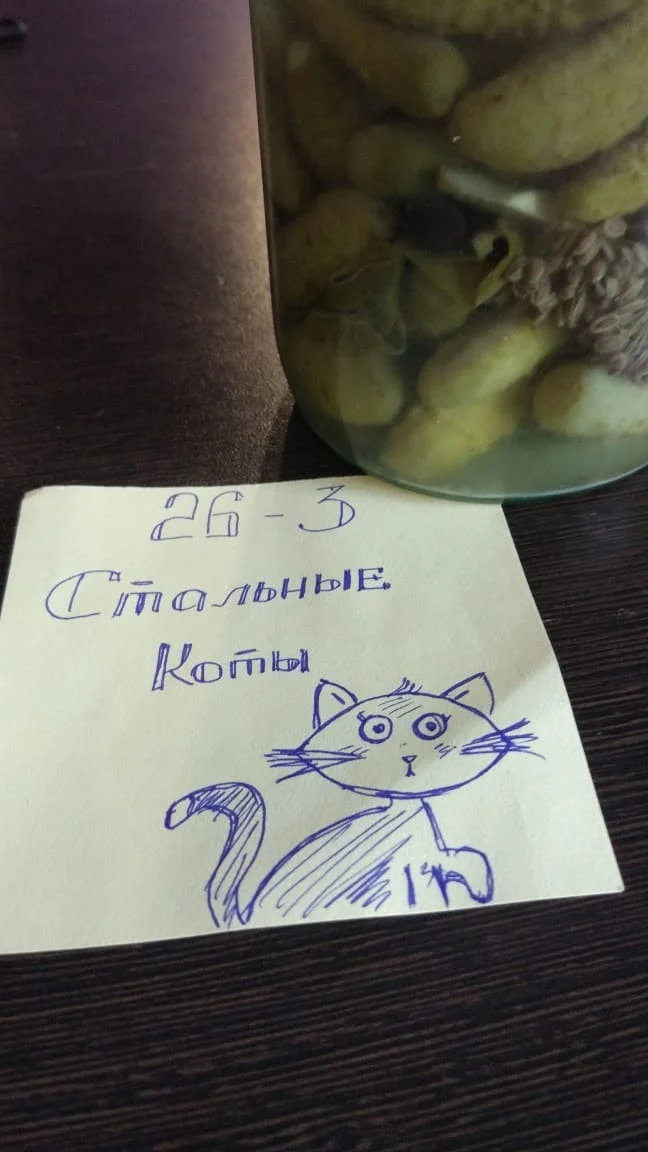 26-3
Стальные
Коты